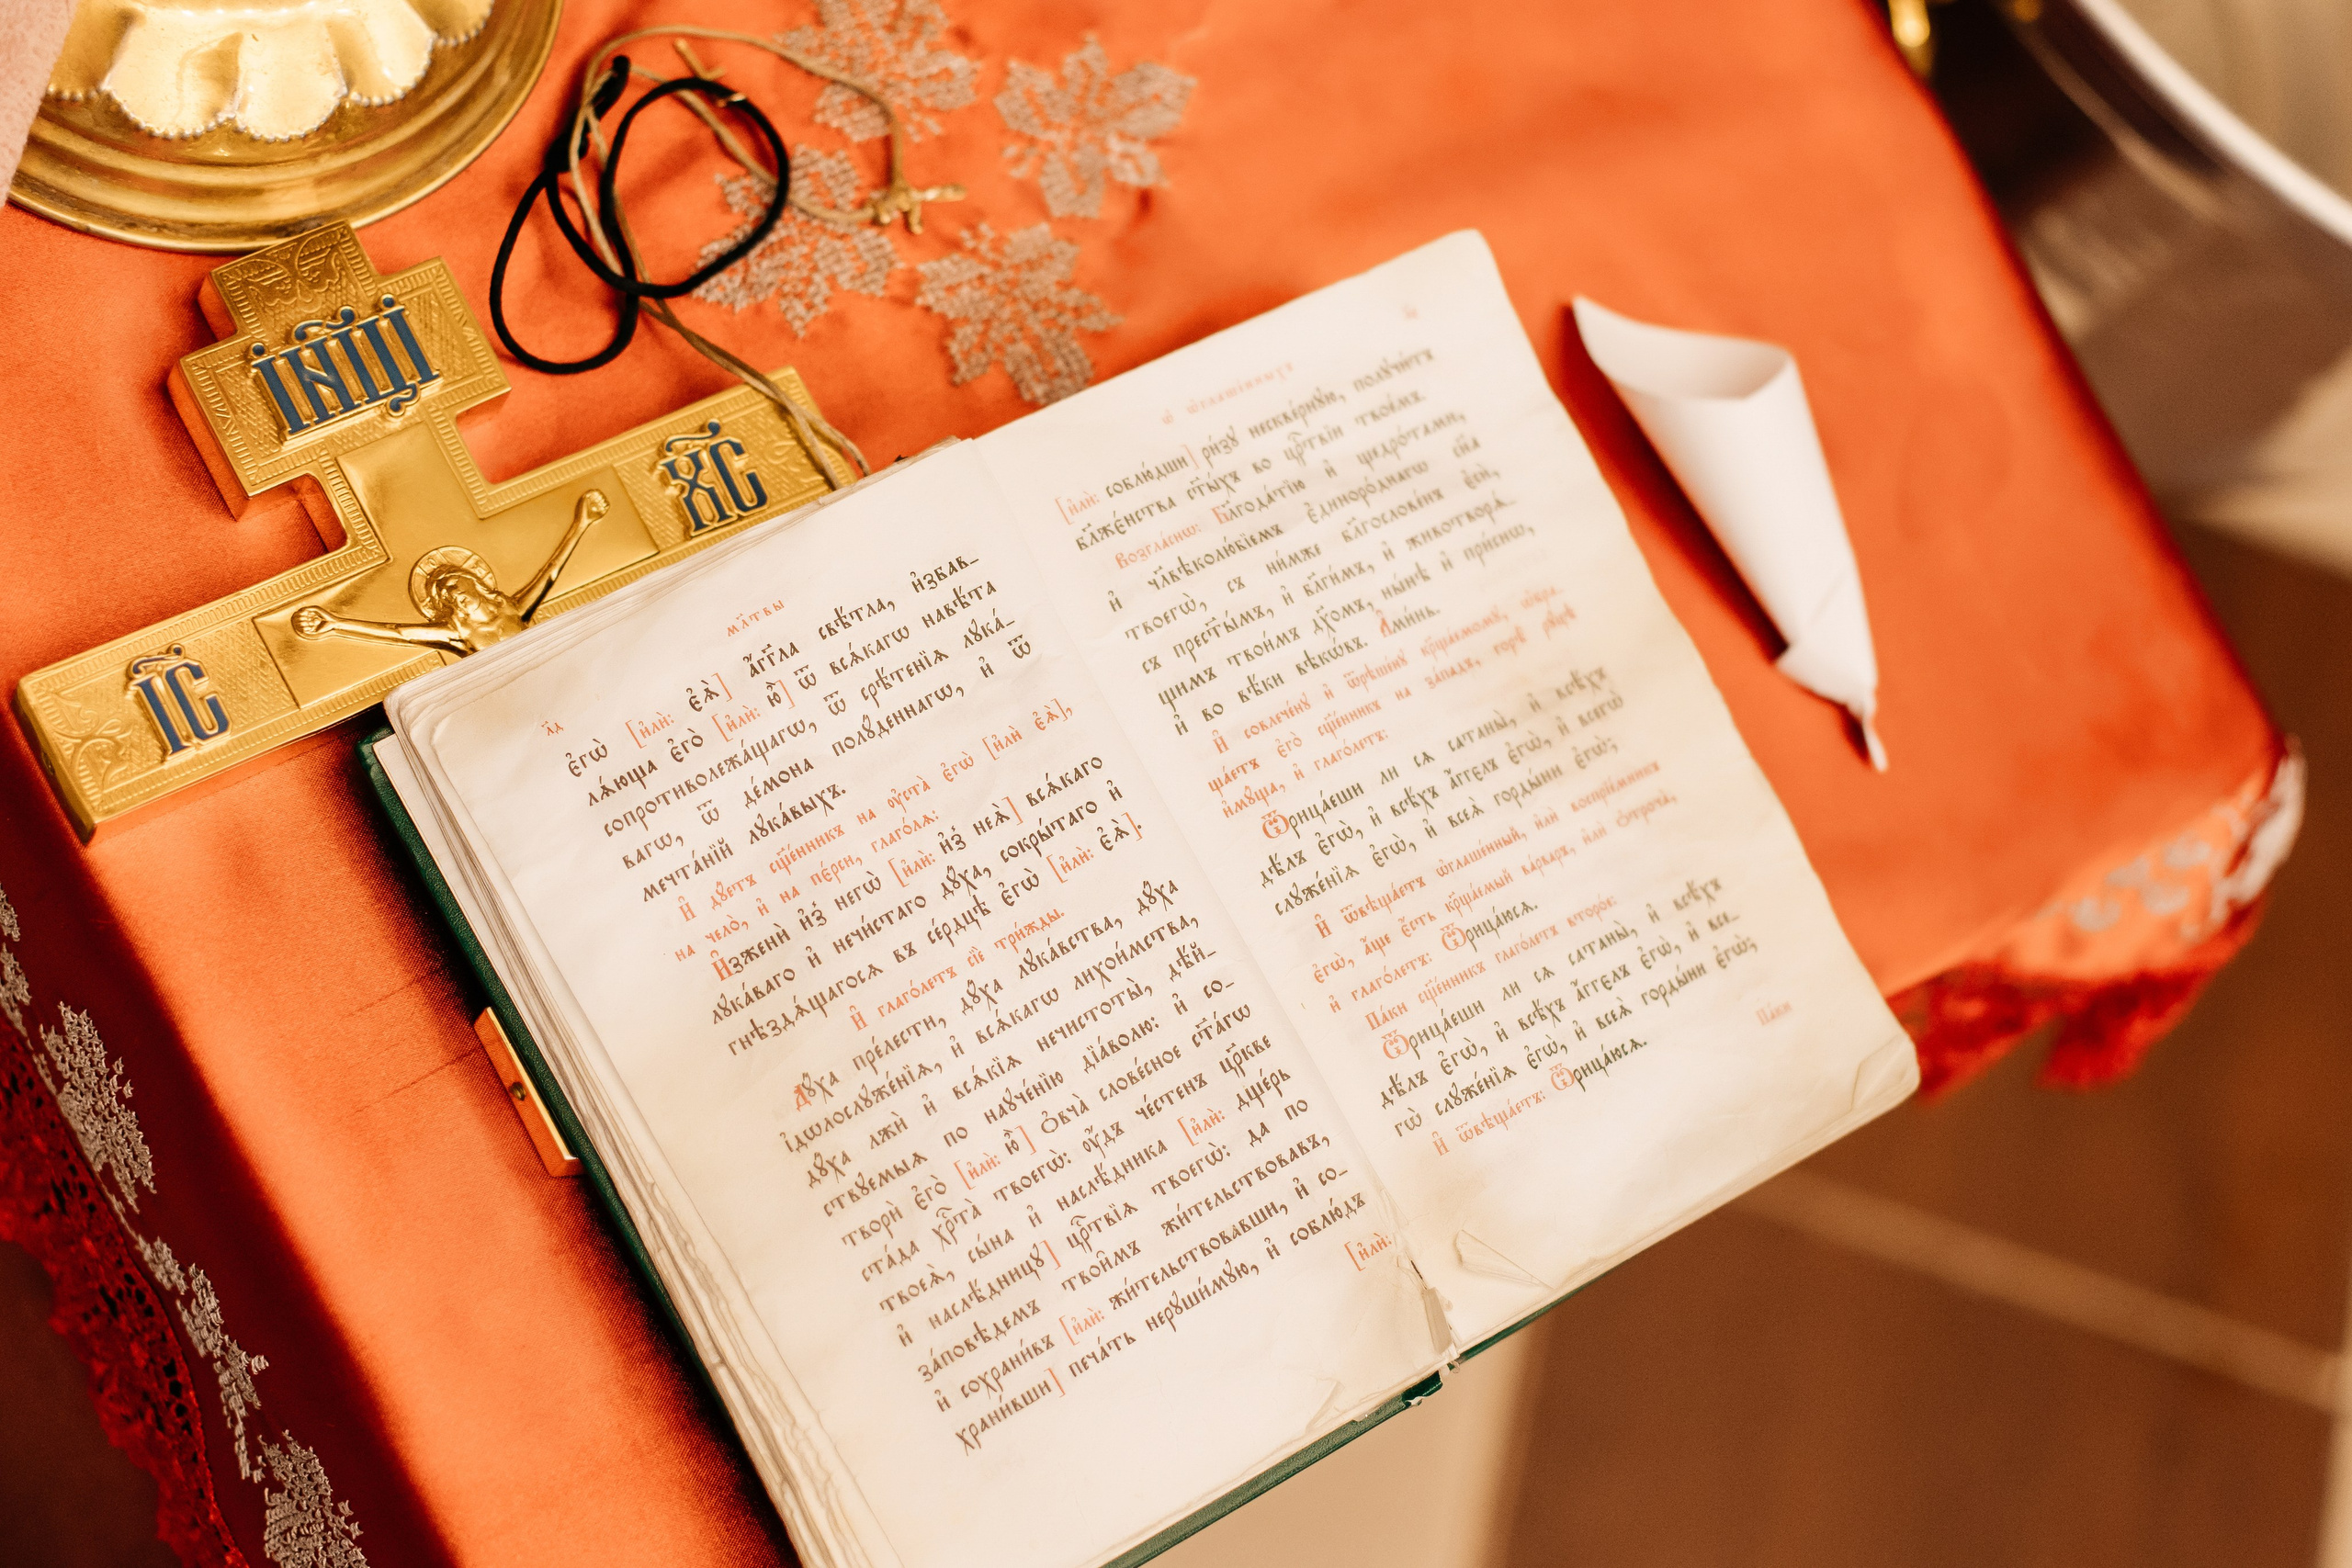 І҆Н҃ЦІ
І҆С҃
Х҃С
мл҃твы
л҃д
є҆гѡ̀ [и҆лѝ: є҆ѧ̀] а҆́гг҃ла свѣ́тла, и҆збав_
лѧ́юща є҆го̀ [и҆лѝ: ю҆̀] ѿ всѧ́кагѡ навѣ́та
сопротиволежа́щагѡ, ѿ срѣ́тенїѧ лꙋка́_
вагѡ, ѿ де́мона полꙋ́деннагѡ, и҆ ѿ
мечта́нїй лꙋка́выхъ.
И҆ дꙋ́етъ сщ҃е́нникъ на ᲂу҆ста̀ є҆гѡ̀ [и҆лѝ є҆ѧ̀],
на чело̀, и҆ на пє́рси, глаго́лѧ:
И҆зженѝ и҆з̾ негѡ̀ [и҆лѝ: и҆з̾ неѧ̀] всѧ́каго
лꙋка́ваго и҆ нечи́стаго дꙋ́ха, сокры́таго и҆
гнѣздѧ́щагосѧ въ се́рдцѣ є҆гѡ̀ [и҆лѝ: є҆ѧ̀].
И҆ глаго́летъ сїѐ три́жды.
Дꙋ́ха пре́лести, дꙋ́ха лꙋка́вства, дꙋ́ха
і҆дѡлослꙋже́нїѧ, и҆ всѧ́кагѡ лихои́мства,
дꙋ́ха лжѝ и҆ всѧ́кїѧ нечистоты̀, дѣ́й_
ствꙋемыѧ по наꙋче́нїю дїа́волю: и҆ со_
творѝ є҆го̀ [и҆лѝ: ю҆̀] ѻ҆вча̀ слове́сное ст҃а́гѡ
ста́да хрⷭ҇та̀ твоегѡ̀: ᲂу҆́дъ че́стенъ цр҃кве
твоеѧ̀, сы́на и҆ наслѣ́дника [и҆лѝ: дще́рь
и҆ наслѣ́дницꙋ] црⷭ҇твїѧ твоегѡ̀: да по
за́повѣдемъ твои̑мъ жи́тельствовавъ,
и҆ сохрани́въ [и҆лѝ: жи́тельствовавши, и҆ со_
храни́вши] печа́ть нерꙋши́мꙋю, и҆ соблю́дъ
[и҆лѝ:
ѡ҆ ѡ҆глаше́нныхъ
[и҆лѝ: соблю́дши] ри́зꙋ нескве́рнꙋю, полꙋчи́тъ
бл҃же́нства ст҃ы́хъ во црⷭ҇твїи твое́мъ.
Возгла́снѡ: Бл҃года́тїю и҆ щедро́тами,
и҆ чл҃вѣколю́бїемъ є҆диноро́днагѡ сн҃а
твоегѡ̀, съ ни́мже блгⷭ҇ослове́нъ є҆сѝ,
съ прест҃ы́мъ, и҆ бл҃ги́мъ, и҆ животворѧ́_
щимъ твои́мъ дх҃омъ, ны́нѣ и҆ при́снѡ,
и҆ во вѣ́ки вѣкѡ́въ. А҆ми́нь.
И҆ совлече́нꙋ и҆ ѿрѣше́нꙋ крⷭ҇ща́емомꙋ,
ща́етъ є҆го̀ сщ҃е́нникъ на за́падъ, горѣ̀ рꙋ́цѣ
и҆мꙋ́ща, и҆ глаго́летъ:
Ѿрица́еши ли сѧ сатаны̀, и҆ всѣ́хъ
дѣ́лъ є҆гѡ̀, и҆ всѣ́хъ а҆́ггелъ є҆гѡ̀, и҆ всегѡ̀
слꙋже́нїѧ є҆гѡ̀, и҆ всеѧ̀ горды́ни є҆гѡ̀;
И҆ ѿвѣща́етъ ѡ҆глаше́нный, и҆лѝ воспрїе́мникъ
є҆гѡ̀, а҆́ще є҆́сть крⷭ҇ща́емый ва́рваръ, и҆лѝ ѻ҆троча̀,
и҆ глаго́летъ: Ѿрица́юсѧ.
Па́ки сщ҃е́нникъ глаго́летъ второ́е:
Ѿрица́еши ли сѧ сатаны̀, и҆ всѣ́хъ
дѣ́лъ є҆гѡ̀, и҆ всѣ́хъ а҆́ггелъ є҆гѡ̀, и҆ все_
гѡ̀ слꙋже́нїѧ є҆гѡ̀, и҆ всеѧ̀ горды́ни є҆гѡ̀;
И҆ ѿвѣща́етъ: Ѿрица́юсѧ.
Па́ки